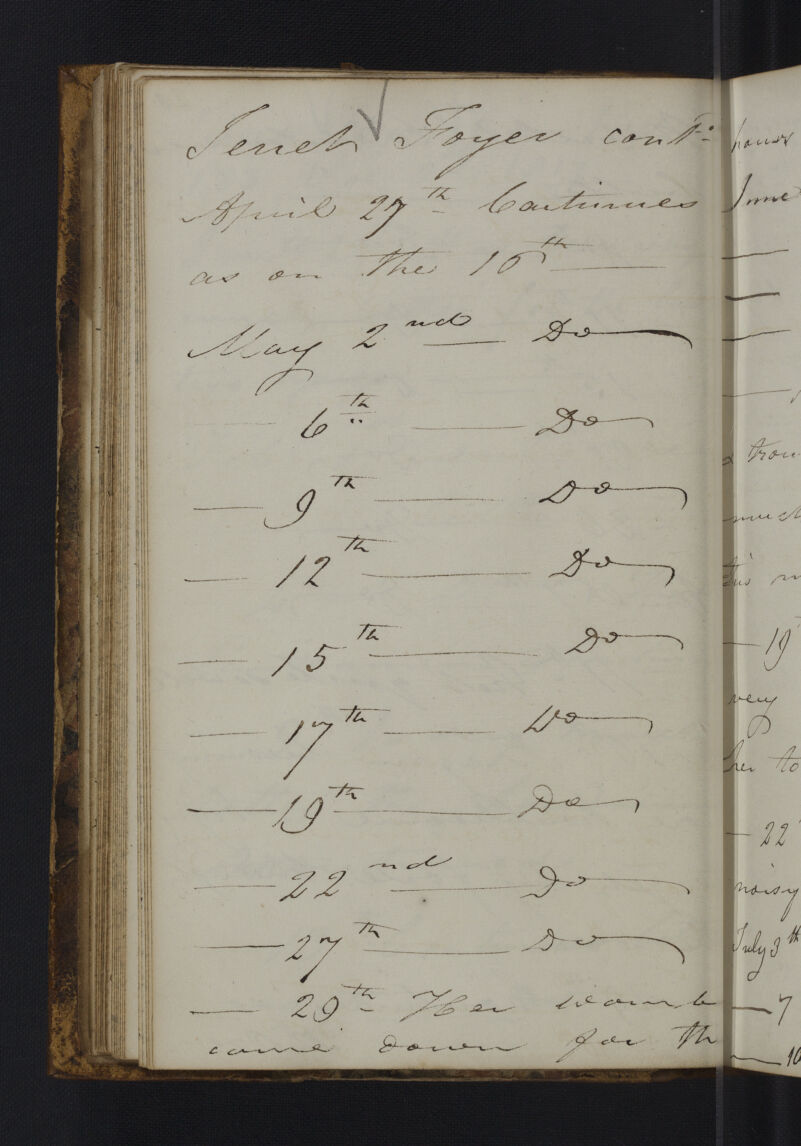 Jenet Foyer cont.
April 27th Continues
as on the 16th —
May 2nd — Do
6th — Do
— 9th — Do
— 12th — Do
— 15th — Do
— 17th — Do
— 19th — Do
— 22nd — Do
— 27th — Do
— 29th Her womb
came down for th
hours
June
—
—
—
—
& trou
much
this m
— 19
very
her to
— 22
noisy
July 3th
— 7
— 10